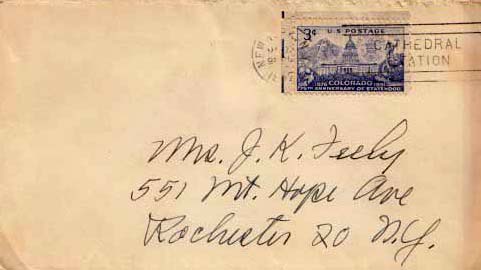 3¢ U.S. POSTAGE
CATHEDRAL
STATION
NEW
1876 COLORADO 1951
75TH ANNIVERSARY OF STATEHOOD
Mrs. J. K. Feely
551 Mt. Hope Ave
Rochester 20 N.Y.